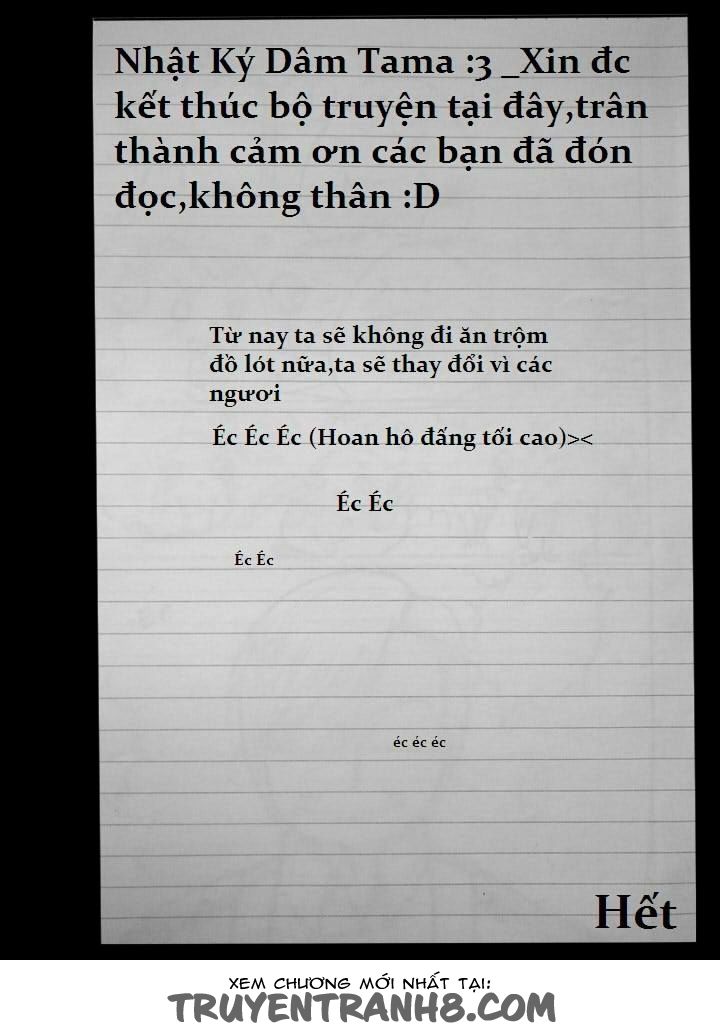 Nhật Ký Dâm Tama :3 _Xin đc
kết thúc bộ truyện tại đây,trân
thành cảm ơn các bạn đã đón
đọc,không thân :D
Từ nay ta sẽ không đi ăn trộm
đồ lót nữa,ta sẽ thay đổi vì các
ngươi
Éc Éc Éc (Hoan hô đấng tối cao)><
Éc Éc
Éc Éc
éc éc éc
Hết
XEM CHƯƠNG MỚI NHẤT TẠI:
TRUYENTRANH8.COM